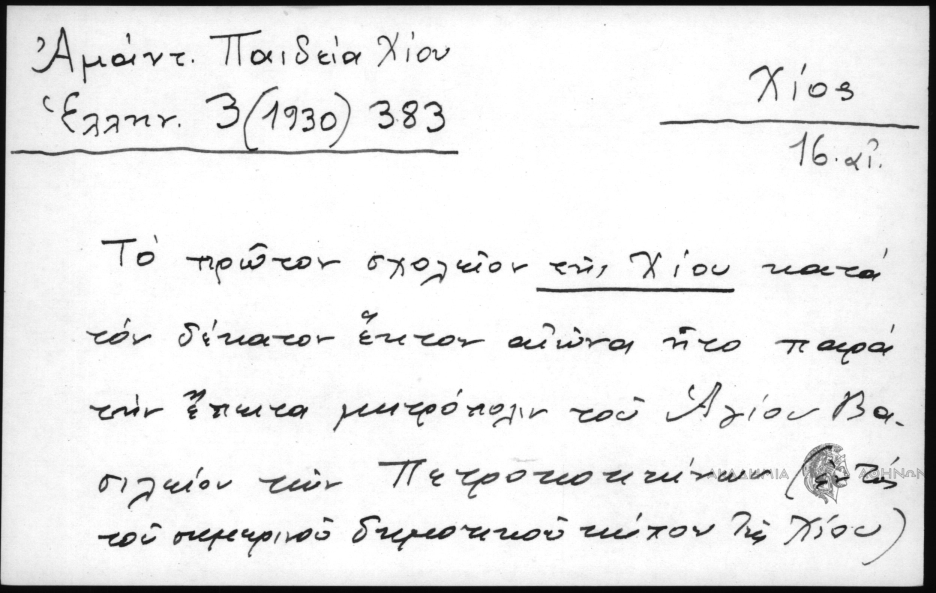 Ἀμάντ. Παιδεία Χίου
Ἑλλην. 3 (1930) 383
Χίος
16. αἰ.
Τὸ πρῶτον σχολεῖον τῆς Χίου κατά
τόν δέκατον ἕκτον αἰῶνα ἦτο παρά
τήν ἔπειτα μητρόπολιν τοῦ Ἁγίου Βα-
σιλείου τῶν Πετροκοκκίνων (ἐντός
τοῦ σημερινοῦ δημοτικοῦ κήπου τῆς Χίου)
ΑΚΑΔΗΜΙΑ ΑΘΗΝΩΝ